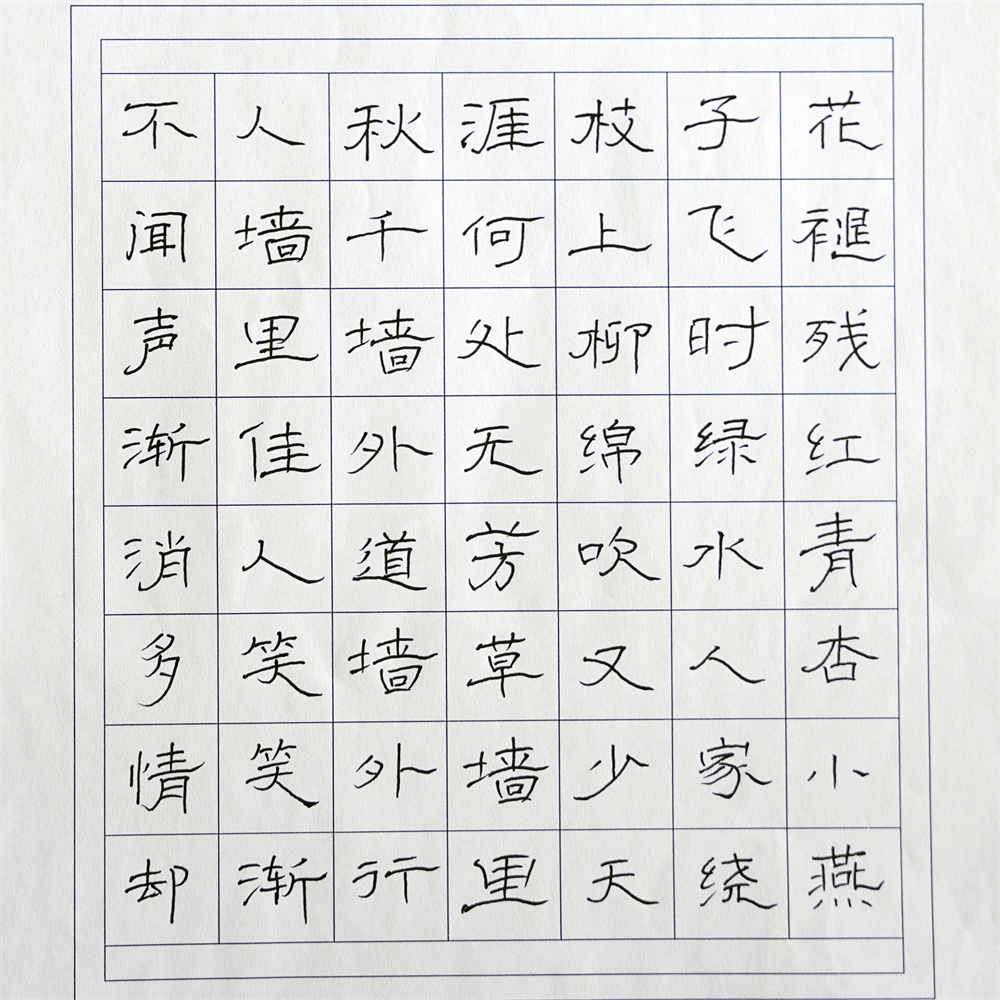 花褪残红青杏小燕
子飞时绿水人家绕
枝上柳绵吹又少天
涯何处无芳草墙里
秋千墙外道墙外行
人墙里佳人笑笑渐
不闻声渐消多情却